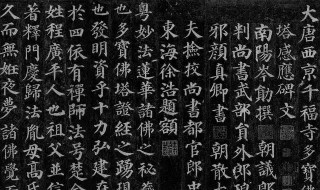 大唐西京千福寺多寶佛
塔感應碑文
南陽岑勛撰 朝議郎
判尚書武部員外郎琅
邪顏真卿書 朝散大
夫撿挍尚書都官郎中
東海徐浩題額
粵妙法蓮華諸佛之秘
也多寶佛塔證經之踴現
也發明資乎十力弘建在
於四依有禪師法号楚金
姓程廣平人也祖父並信
著釋門慶歸法胤母高氏
久而無姙夜夢諸佛覺